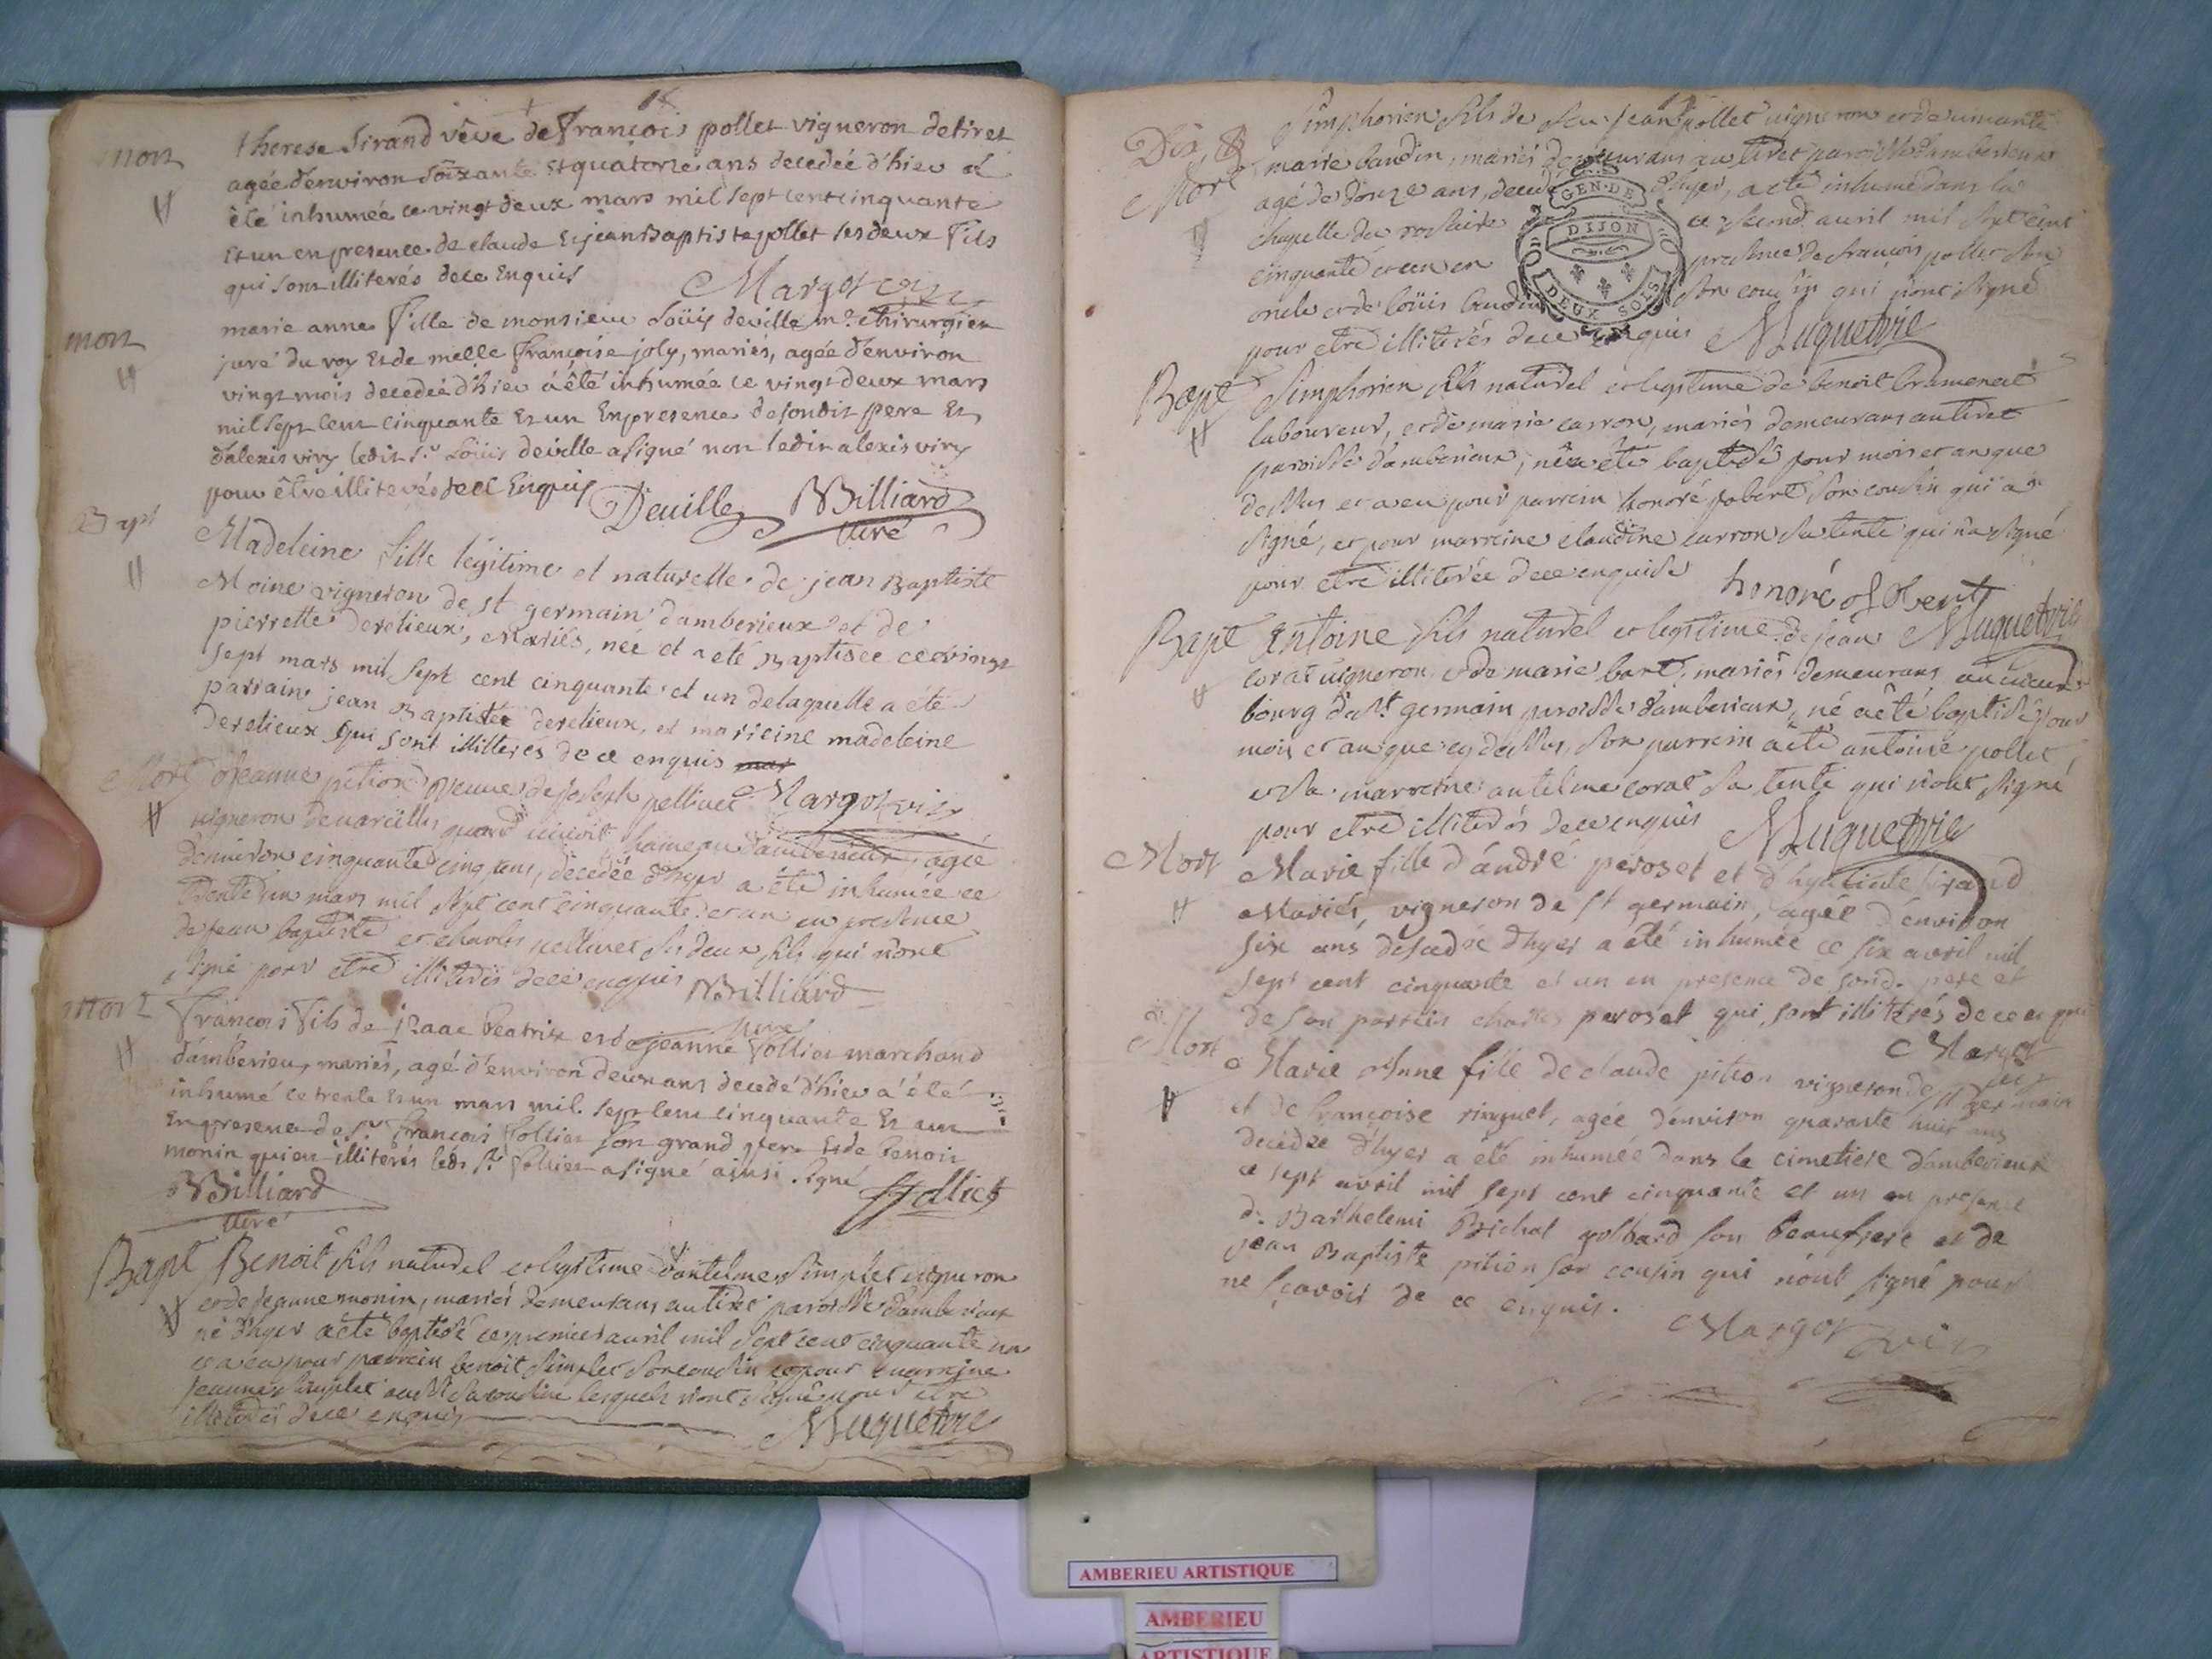 mort
therese Sirand vêve de François pollet vigneron detiret
agée d'environ soixante et quatorze ans decedée d'hier a
été inhumée ce vingt deux mars mil sept cent cinquante
et un en presence de claude et jean Baptiste pollet ses deux fils
qui sont illiterés de ce Enquis
Margot vic
mort
marie anne Fille de monsieur Loüis deville me. chirurgien
juré du roy et de melle Françoise joly, mariés, agée d'environ
vingt mois decedée d'hier a été inhumée ce vingt deux mars
mil sept cent cinquante et un En presence de sondit pere et
d'alexis viry ledit sr. Loüis deville a signé non ledit alexis viry
pour être illiteré de ce Enquis
Deville Billiard
curé
Bapt
Madeleine fille légitime et naturelle de jean Baptiste
Moine vigneron de st germain d'amberieux et de
pierrette derelieux, Mariés, née et a eté Baptisée ce vingt
sept mars mil sept cent cinquante et un de laquelle a été
parrain jean Baptiste derelieux, et marreine madeleine
derelieux qui sont illitterés de ce enquis
Margot vic
Mort
Jeanne pition veuve de joseph pellivet
vigneron de vareilles quand vivoit, hameau d'amberieux, agée
d'environ cinquante cinq ans, decedée d'hyer a été inhumée ce
trente un mars mil sept cent cinquante et un en presence
de jean baptiste et charles pellivet ses deux fils qui n'ont
signé pour etre illiterés de ce enquis
Billiard
curé
mort
François Fils de isaac Beatrix et de jeanne Follier marchand
d'amberieu, mariés, agé d'environ deux ans decedé d'hier a été
inhumé ce trente et un mars mil sept cent cinquante et un
En presence de sr. François Follier son grand pere et de Benoit
monin qui est illiterés ledt sr. Follier a signé ainsi signé
Billiard
curé
Follier
Bapt
Benoit fils naturel et legitime d'antelme simplet vigneron
et de jeanne monin, mariés demeurans au tiret paroisse d'amberieux
né d'hyer a eté baptisé ce premier avril mil sept cent cinquante un
et a eu pour parrein benoit simplet son cousin et pour marreine
jeanne simplet aussi sa cousine lesquels n'ont signé pour etre
illiterés de ce enquis
Muguet vic
Dix 8
Mort
Simphorien fils de feu jean pollet vigneron et de vivante
marie baudin, mariés demeurans au tiret paroisse d'amberieux
agé de douze ans, decedé d'hyer, a eté inhumé dans la
chapelle du rosaire ce second avril mil sept cent
cinquante et un en presence de francois pollet son
oncle et de loüis baudin son cousin qui n'ont signé
pour etre illiterés de ce enquis
Muguet vic
GEN. DE
DIJON
DEUX SOLS
Bapt
Simphorien fils naturel et legitime de benoit bramerel
laboureur, et de marie carron, mariés demeurans au tiret
paroisse d'amberieux, né a été baptisé jour mois et an que
dessus et a eu pour parrein honoré jobert son cousin qui a
signé, et pour marreine claudine carron sa tente qui n'a signé
pour etre illiterée de ce enquise
honoré Jobert
Muguet vic
Bapt
Antoine fils naturel et legitime de jean
corat vigneron et de marie bort, mariés demeurans au vieux
bourg de st. germain paroisse d'amberieux, né a été baptisé jour
mois et an que cy dessus, son parrein a eté antoine pollet
et sa marreine antelme corat sa tente qui n'ont signé
pour etre illiterés de ce enquis
Muguet vic
Mort
Marie fille d'andré peroset et d'hyacinte sirand
Mariés, vigneron de st germain, agée d'environ
six ans desedée d'hyer a été inhumée ce six avril mil
sept cent cinquante et un en presence de sond. pere et
de son parrein charles peroset qui sont illiterés de ce enquis
Margot
vic
Mort
Marie Anne fille de claude pition vigneron de st germain
et de françoise ringuet, agée d'environ quarante huit ans
decedée d'hyer a été inhumée dans le cimetiere d'amberieux
ce sept avril mil sept cent cinquante et un en presence
de Barthelemi Brichat gothard son beaufrere et de
jean Baptiste pition son cousin qui n'ont signé pour
ne sçavoir de ce enquis.
Margot vic
AMBERIEU ARTISTIQUE
AMBERIEU
ARTISTIQUE